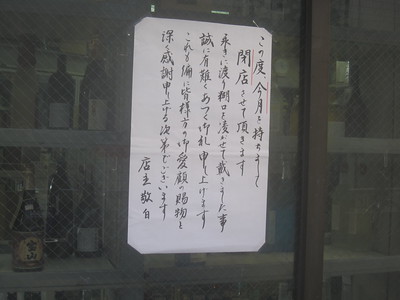 この度、今月を持ちまして
閉店させて頂きます
永きに渡り糊口を凌がせて戴きました事
誠に有難くあつく御礼申し上げます
これも偏に皆様方の御愛顧の賜物と
深く感謝申し上げる次第でございます
店主敬白